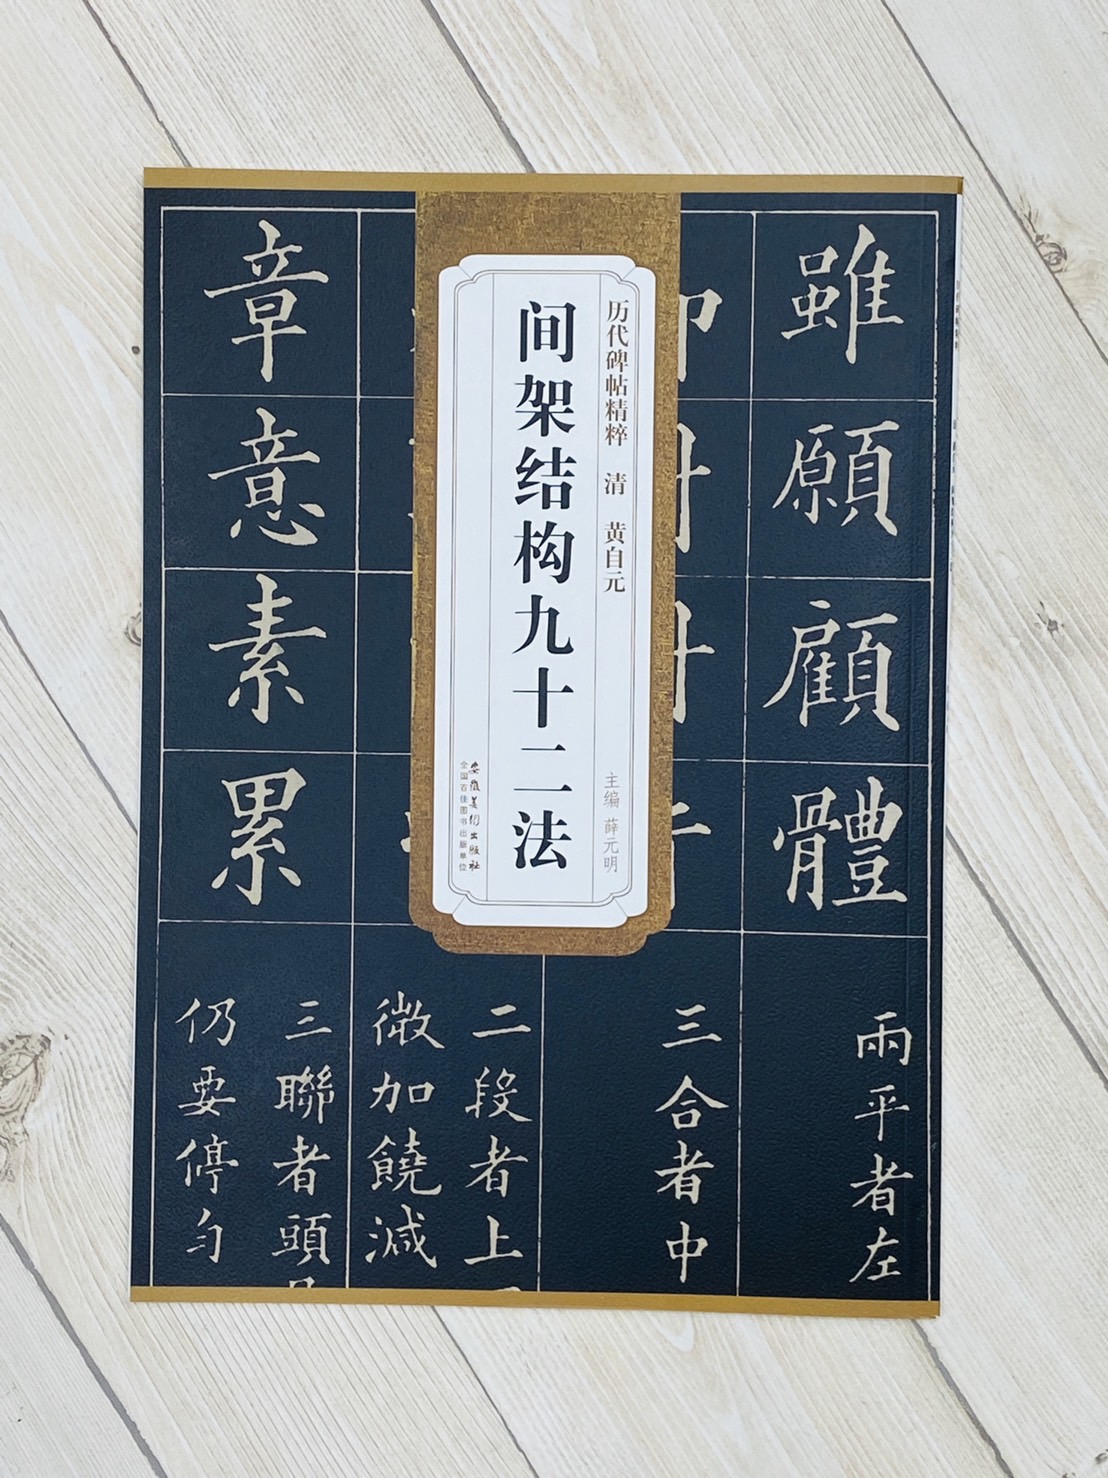 历代碑帖精粹 清 黄自元
主编 薛元明
间架结构九十二法
安徽美术出版社
全国百佳图书出版单位
雖願顧體
兩平者左
三合者中
二段者上
微加饒減
章意素累
三聯者頭
仍要停勻